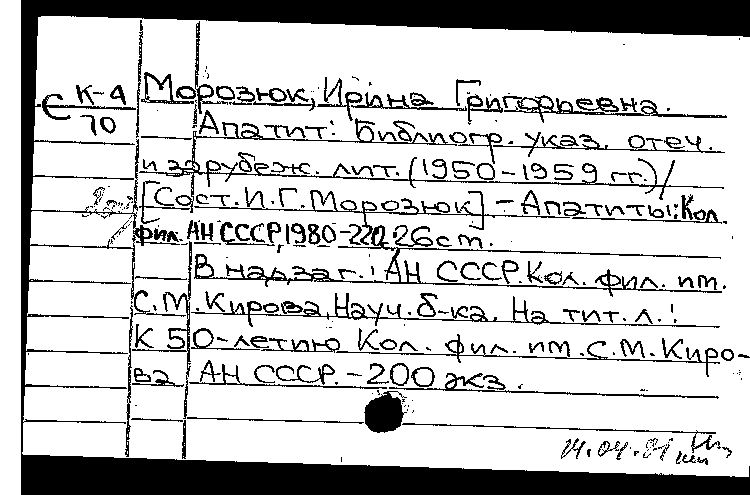 С К-4 Морозюк, Ирина Григорьевна.
70 Апатит: Библиогр. указ. отеч.
и зарубеж. лит. (1950-1959 гг.)/
[Сост. И.Г. Морозюк] - Апатиты: Кол.
фил. АН СССР, 1980-220, 26 см.
В надзаг.: АН СССР. Кол. фил. им.
С.М. Кирова, Науч. б-ка. На тит. л.:
К 50-летию Кол. фил. им. С.М. Киро-
ва АН СССР. - 200 экз.
14.04.81